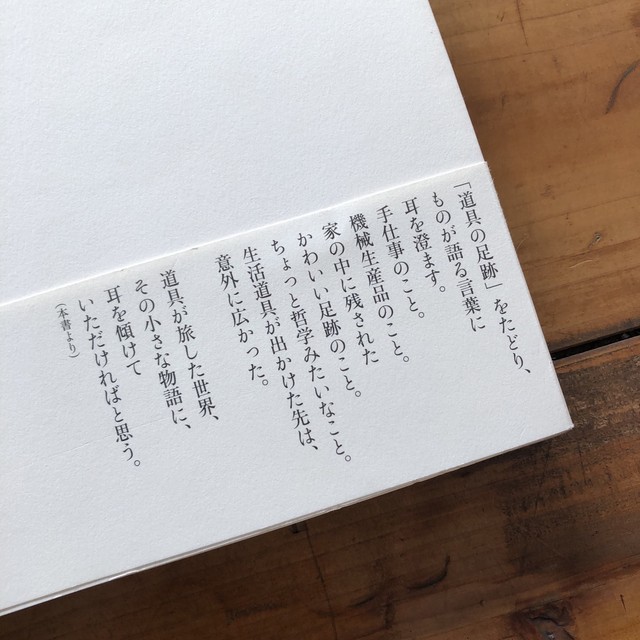 「道具の足跡」をたどり、
ものが語る言葉に
耳を澄ます。
手仕事のこと。
機械生産品のこと。
家の中に残された
かわいい足跡のこと。
ちょっと哲学みたいなこと。
生活道具が出かけた先は、
意外に広かった。
道具が旅した世界、
その小さな物語に、
耳を傾けて
いただければと思う。
（本書より）